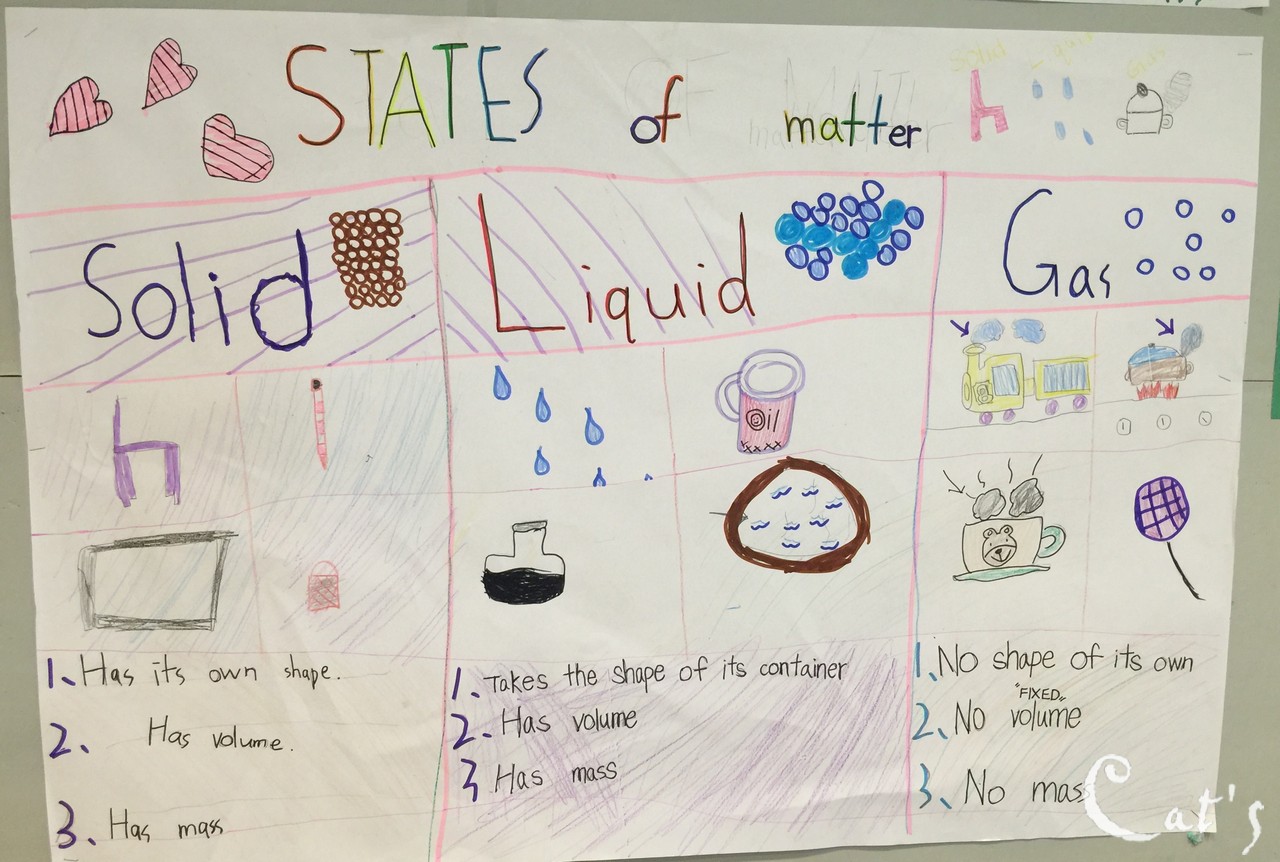 STATES of matter
Solid Liquid Gas
Solid
Liquid
Gas
Oil
1、Has its own shape.
2、 Has volume.
3、Has mass
1、Takes the shape of its container
2、Has volume
3 Has mass
1、No shape of its own
"FIXED"
2、No volume
3、No mass
Cat's